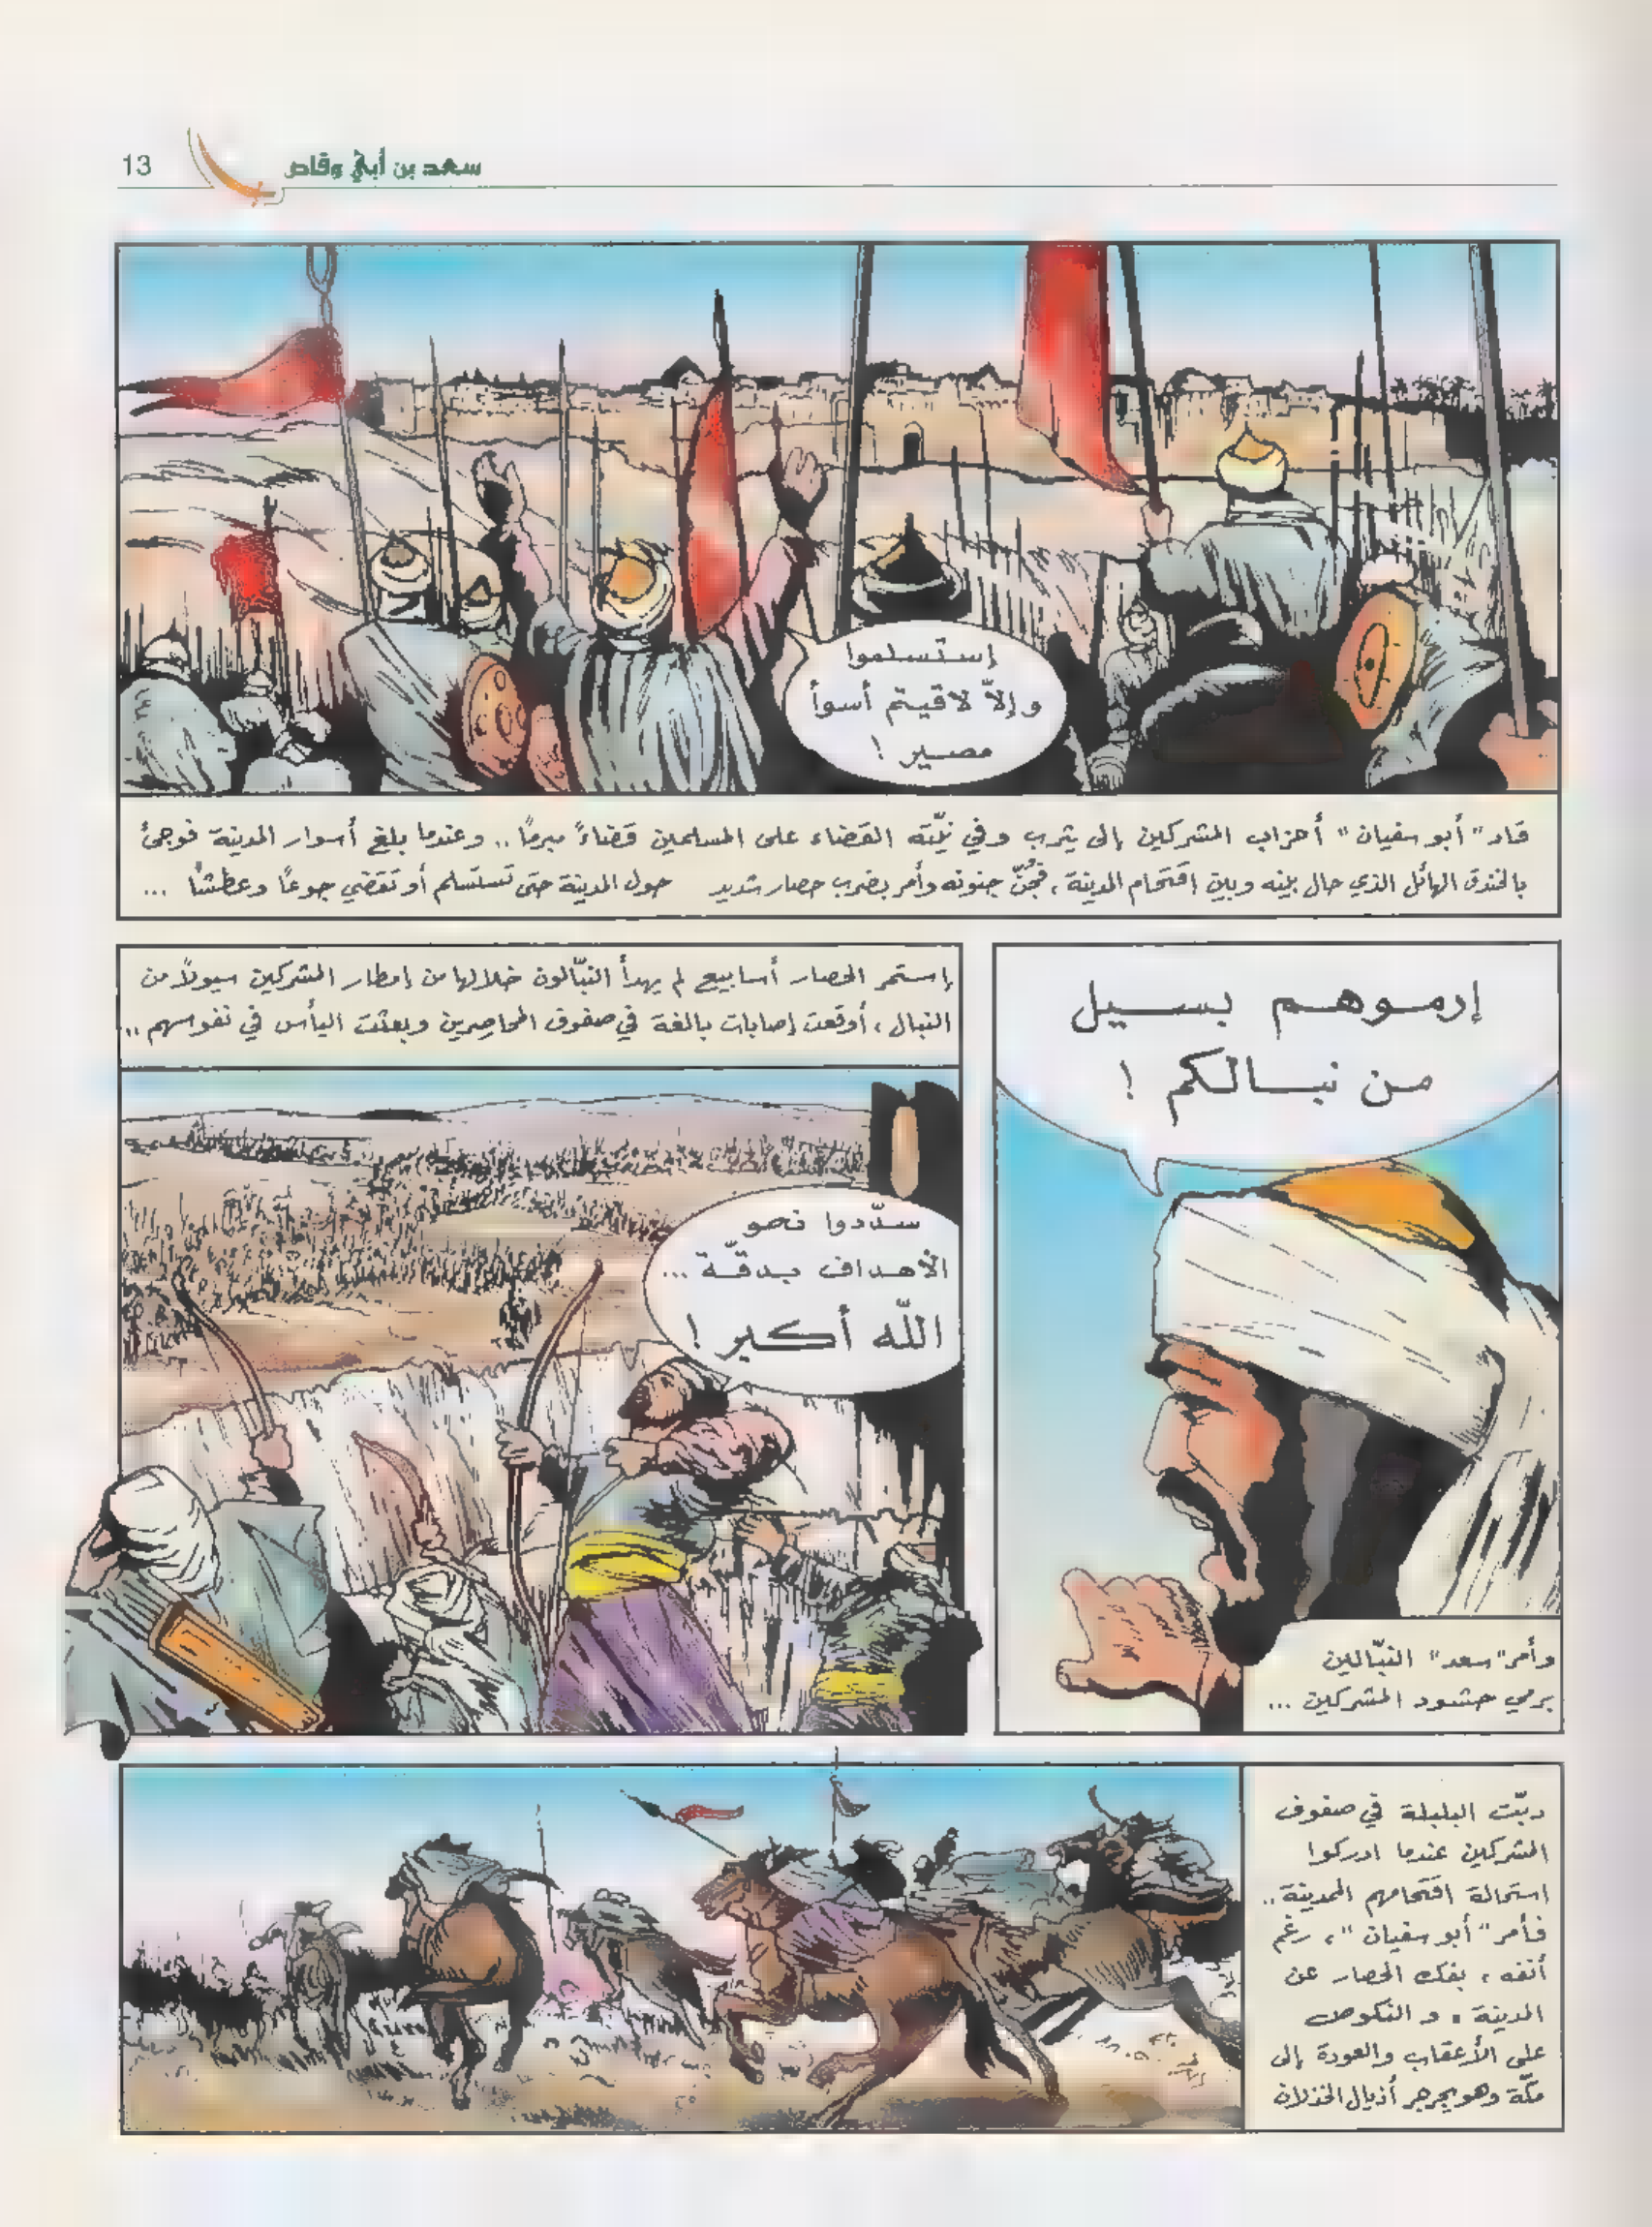 سعد بن أبي وقاص
13
إستسلموا
وإلاّ لاقيتم أسوأ
مصير !
قاد "أبو سفيان" أحزاب المشركين إلى يثرب وفي نيّته القضاء على المسلمين قضاءً مبرمًا .. وعندما بلغ أسوار المدينة فوجئ
بالخندق الهائل الذي حال بينه وبين اقتحام المدينة ، فجُنّ جنونه وأمر بضرب حصار شديد حول المدينة حتى تستسلم أو تقضي جوعًا وعطشًا ...
إرموهم بسيل
من نبالكم !
وأمر "سعد" النبّالين
برمي حشود المشركين ...
إستمر الحصار أسابيع لم يهدأ النبّالون خلالها من إمطار المشركين سيولاً من
النبال ، أوقعت إصابات بالغة في صفوف المحاصِرين وبعثت اليأس في نفوسهم ..
سدّدوا نحو
الأهداف بدقّة ...
اللّه أكبر !
دبّت البلبلة في صفوف
المشركين عندما ادركوا
استحالة اقتحامهم المدينة ..
فأمر "أبو سفيان" ، رغم
أنفه ، بفك الحصار عن
المدينة ، و النكوص
على الأعقاب والعودة إلى
مكّة وهو يجرجر أذيال الخذلان